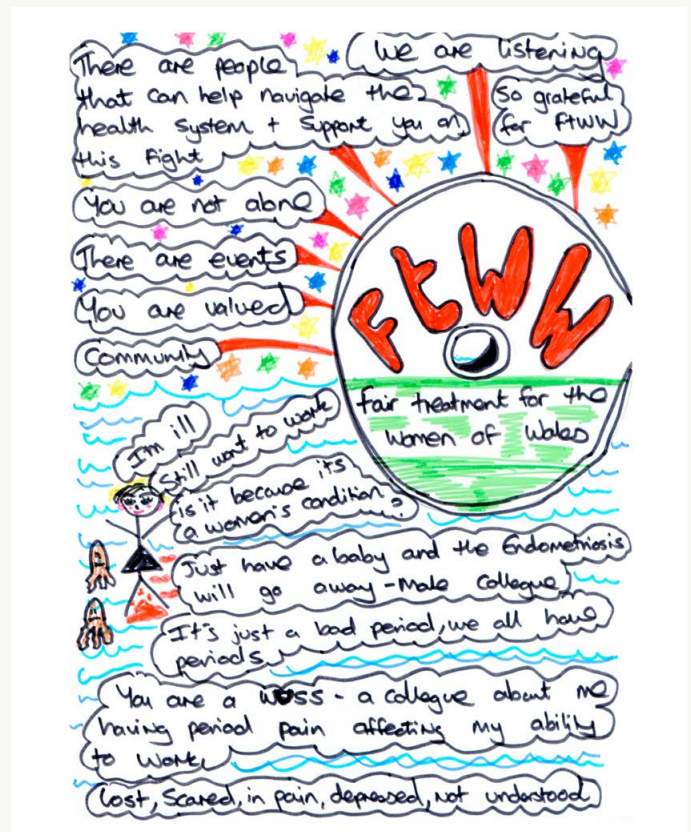 We are listening
There are people
that can help navigate the
health system + support you on
this fight
So grateful
for FTWW
You are not alone
There are events
You are valued
Community
FTWW
fair treatment for the
women of Wales
I'm ill
Still want to work
is it because its
a women's condition?
Just have a baby and the Endometriosis
will go away - Male collegue
It's just a bad period, we all have
periods
You are a wuss - a collegue about me
having period pain affecting my ability
to work.
Lost, Scared, in pain, depressed, not understood